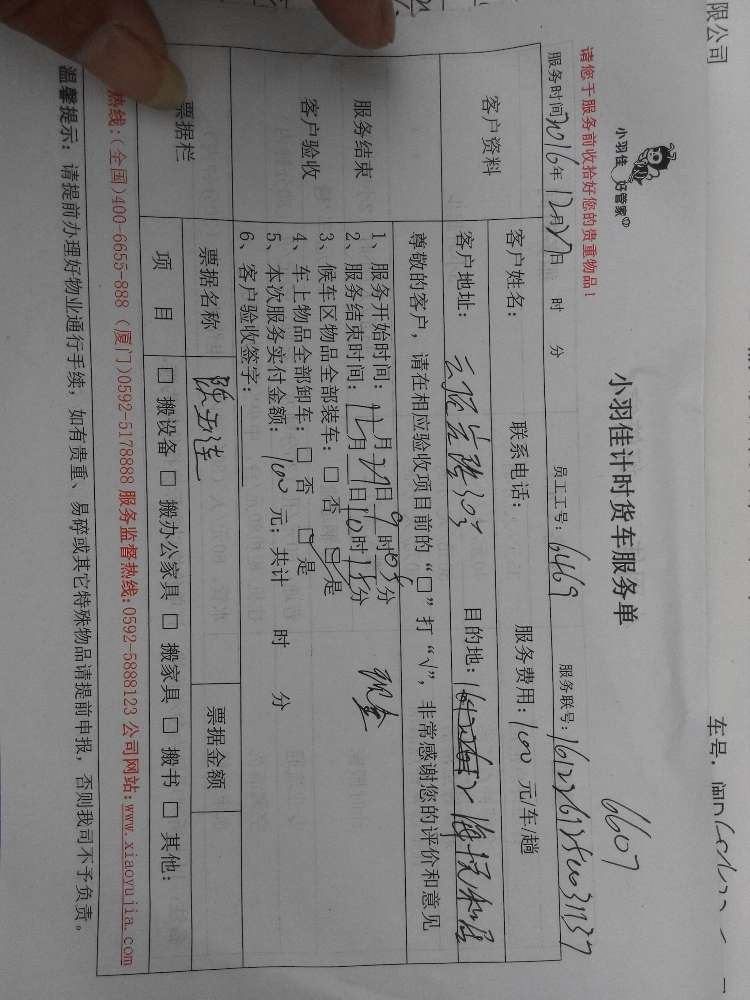 限公司
车号:闽D
6607
小羽佳 好管家
小羽佳计时货车服务单
请您于服务前收拾好您的贵重物品!
服务时间2016年12月27日 时 分 员工工号:6469 服务联号:
客户资料
客户姓名: 联系电话: 服务费用:100 元/车/趟
客户地址: 303 目的地:
尊敬的客户,请在相应验收项目前的“□”打“√”,非常感谢您的评价和意见
服务结束
客户验收
1、服务开始时间:12月27日9时05分 现金
2、服务结束时间:12月27日10时15分
3、候车区物品全部装车:□ 否 ☑ 是
4、车上物品全部卸车:□ 否 ☑ 是
5、本次服务实付金额:100 元;共计 时 分
6、客户验收签字:
票据栏
票据名称 票据金额
项 目 □ 搬设备 □ 搬办公家具 □ 搬家具 □ 搬书 □ 其他:
热线:(全国)400-6655-888 (厦门)0592-5178888 服务监督热线:0592-5888123 公司网站:www.xiaoyujia.com
温馨提示:请提前办理好物业通行手续,如有贵重、易碎或其它特殊物品请提前申报,否则我司不予负责。